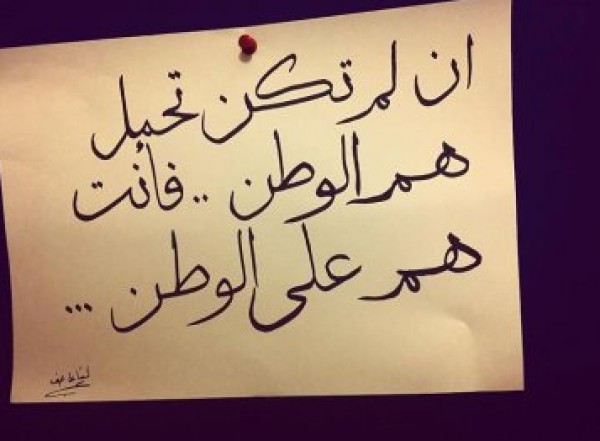 ان لم تكن تحمل
هم الوطن .. فأنت
هم على الوطن ...